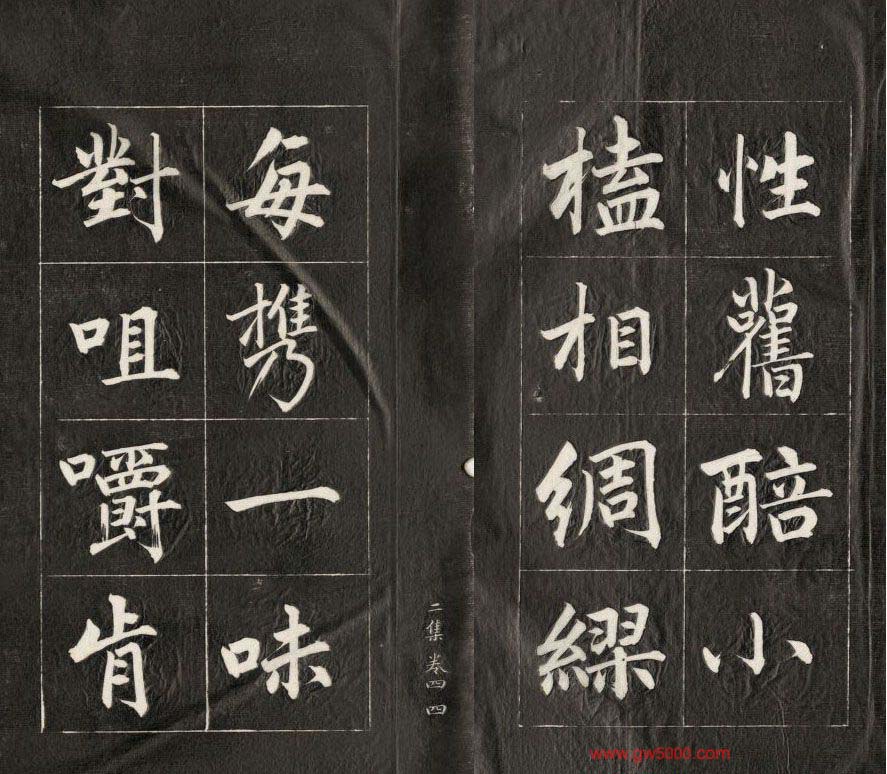 性舊醅小
榼相綢繆
二集卷四 四
每携一味
對咀嚼肯
www.gw5000.com